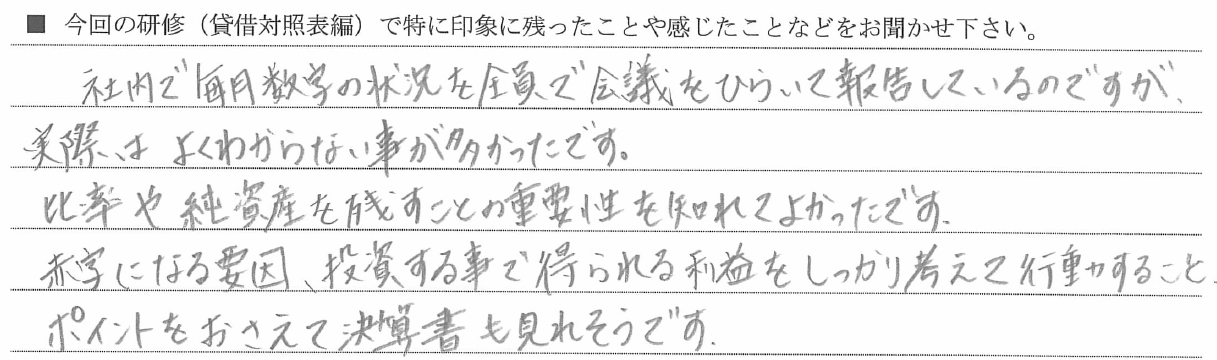 ■ 今回の研修（貸借対照表編）で特に印象に残ったことや感じたことなどをお聞かせ下さい。
社内で毎月数字の状況を全員で会議をひらいて報告しているのですが、
実際は よくわからない事が多かったです。
比率や純資産を残すことの重要性を知れてよかったです。
赤字になる要因、投資する事で得られる利益をしっかり考えて行動すること、
ポイントをおさえて決算書も見れそうです。